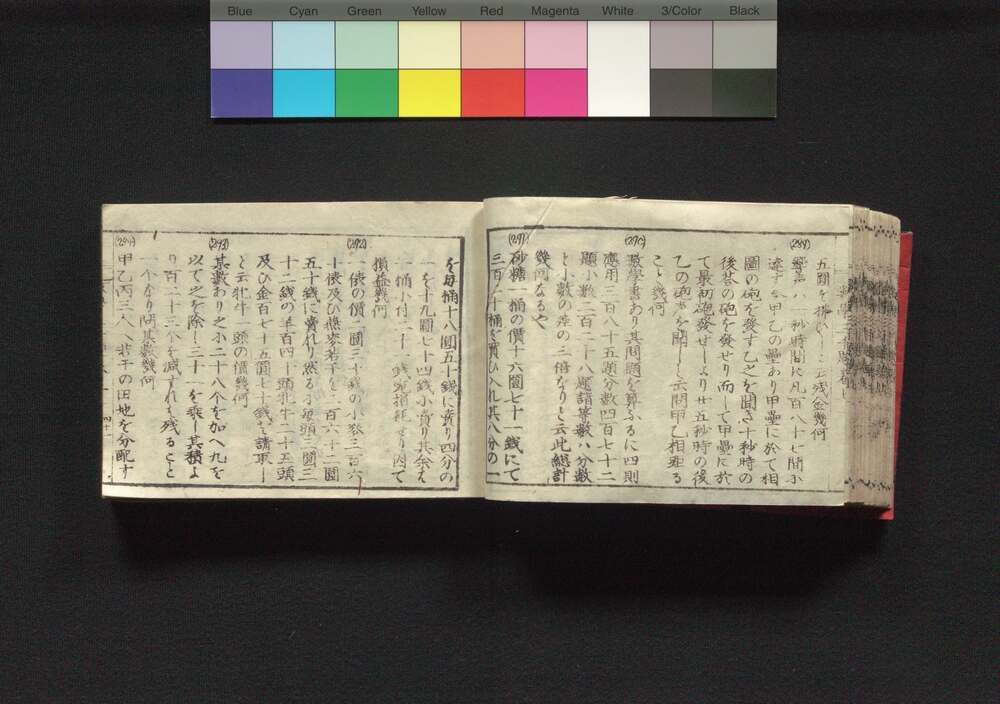 Blue Cyan Green Yellow Red Magenta White 3/Color Black
(289)
響音ハ一秒時間に凡百八十七間
達す
甲乙の壘あり甲壘に於て相
圖の砲を發す乙之を聞き十秒時の
後答の砲を發せり而して甲壘に於
て最初砲發せしより廿五秒時の後
乙の砲聲を聞しと云問甲乙相距る
こと幾何
(290)
數學書あり其問題を算ふるに四則
應用三百八十五題分數四百七十二
題小數三百二十八題諸等數ハ分數
と小數の差の三倍なりと云此總計
幾何なるや
(291)
砂糖一桶の價十六圓七十一錢にて
三百二十桶を買ひ入れ其八分の一
を每桶十八圓五十錢に賣り四分の
一を十九圓七十四錢に賣り其余ハ
一桶に付二十一錢宛損耗せり因て
損益幾何
(292)
一俵の價二圓三十錢の小麥三百六
十俵及び燕麥若干を二百六十二圓
五十錢に賣れり然るに每頭三圓三
十二錢の羊百四十頭牝牛二十五頭
及び金百七十五圓七十錢を請取し
と云牝牛一頭の價幾何
(293)
某數あり之に二十八个を加へ九を
以て之を除し三十一を乘し其積よ
り百二十三个を減ずれば殘ること
一个なり問其數幾何
(294)
甲乙丙三人若干の田地を分配す